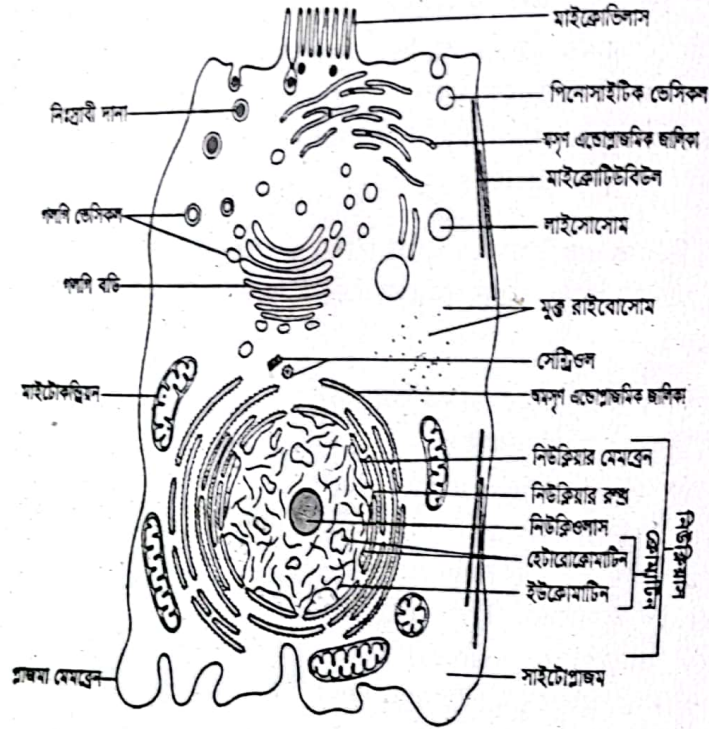 মাইক্রোভিলাস
পিনোসাইটিক ভেসিকল
নিঃস্রাবী দানা
মসৃণ এন্ডোপ্লাজমিক জালিকা
মাইক্রোটিউবিউল
গলগি ভেসিকল
লাইসোসোম
গলগি বডি
মুক্ত রাইবোসোম
সেন্ট্রিওল
মাইটোকন্ড্রিয়ন
অমসৃণ এন্ডোপ্লাজমিক জালিকা
নিউক্লিয়ার মেমব্রেন
নিউক্লিয়ার রন্ধ্র
নিউক্লিওলাস
হেটারোক্রোমাটিন
ইউক্রোমাটিন
ক্রোমাটিন
নিউক্লিয়াস
প্লাজমা মেমব্রেন
সাইটোপ্লাজম